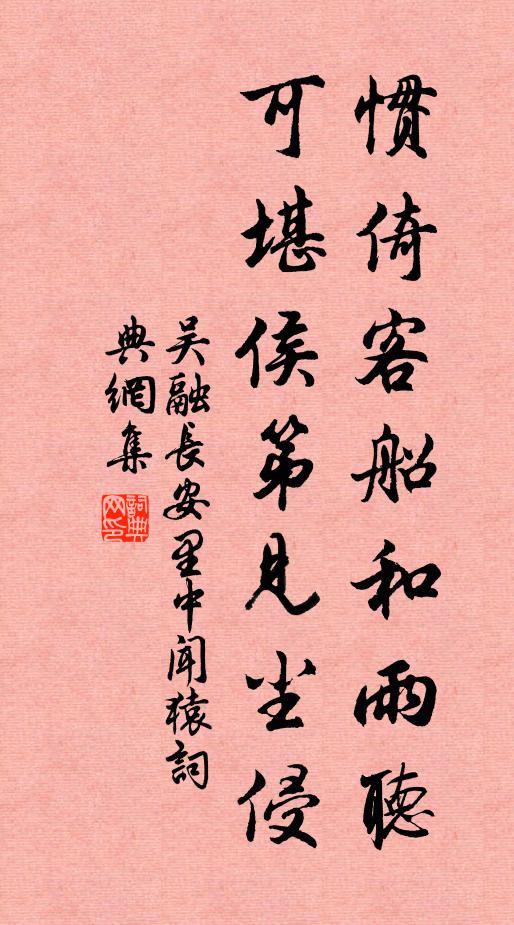 慣倚客船和雨聽
可堪侯第見尘侵
吴融長安里中闻猿詞
典網集
詞典网印